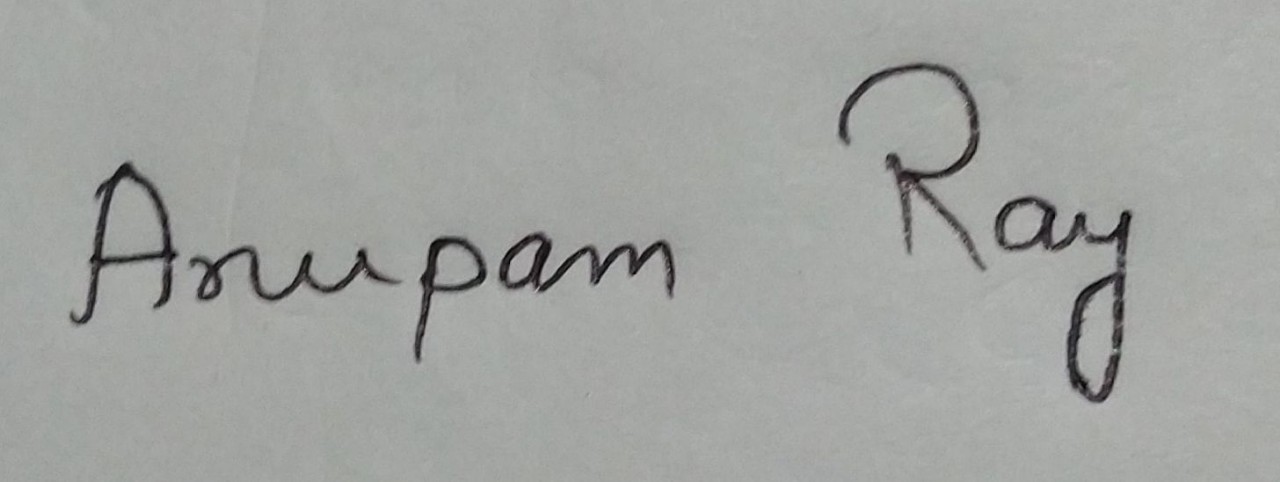 Anupam Ray